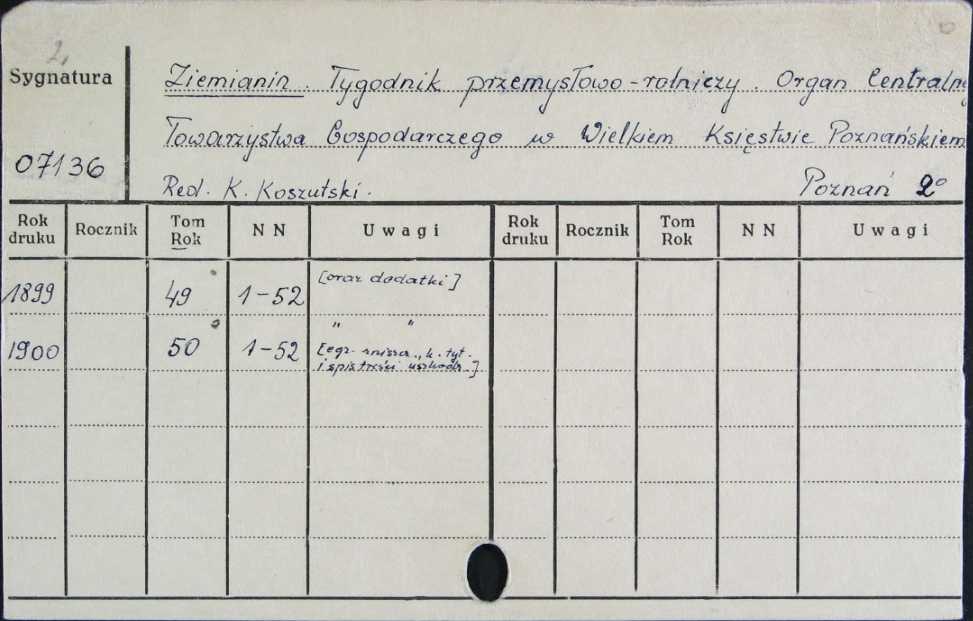 2,
Sygnatura
Ziemianin. Tygodnik przemysłowo-rolniczy. Organ Centralne
Towarzystwa Gospodarczego w Wielkiem Księstwie Poznańskiem
07136
Red. K. Koszutski. Poznań 2°
Rok druku Rocznik Tom Rok N N Uwagi Rok druku Rocznik Tom Rok N N Uwagi
1899 49 1-52 [oraz dodatki]
" "
1900 50 1-52 [egz. k. tyt.
i spis treści uszkodz.]